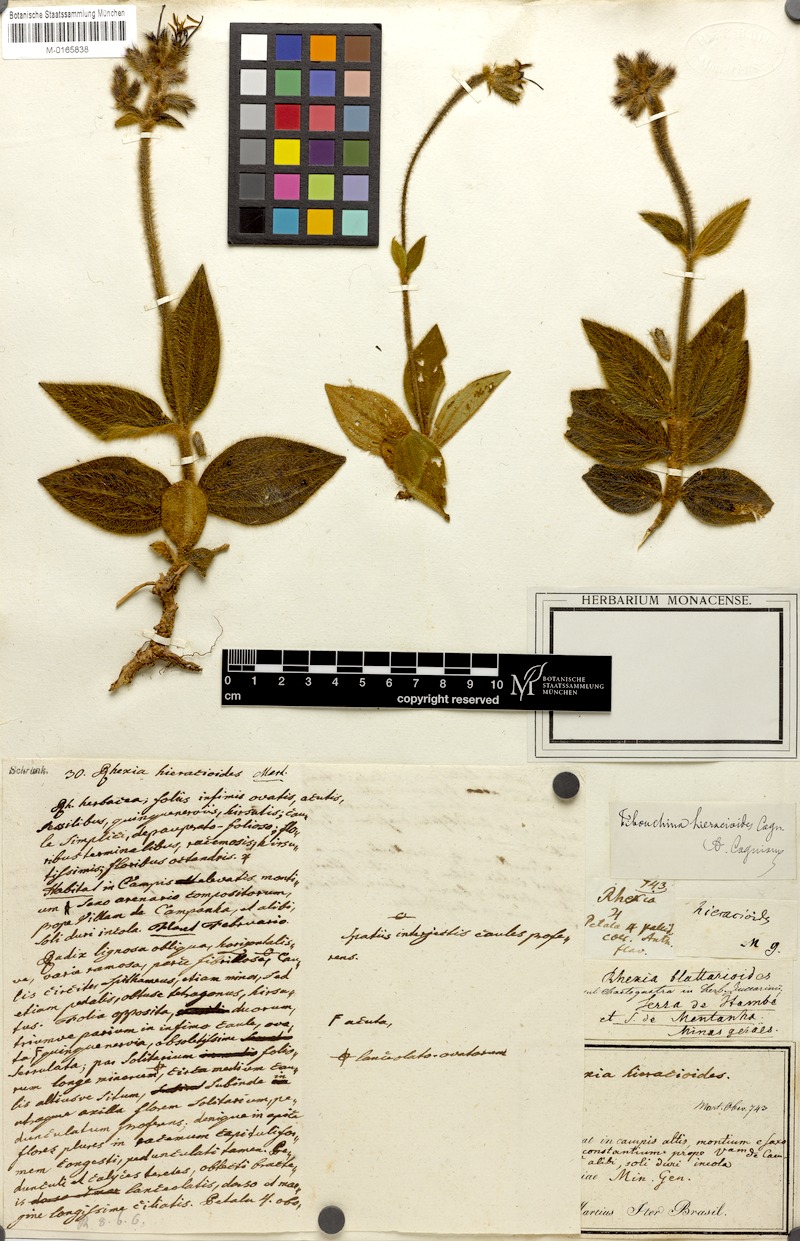 Botanische Staatssammlung München
M-0165838
HERBARIUM MONACENSE.
0 1 2 3 4 5 6 7 8 9 10
cm
copyright reserved
BOTANISCHE
STAATSSAMMLUNG
MÜNCHEN
Schrank.
30. Rhexia hieracioides Mart.
Rh. herbacea; foliis infimis ovatis, acutis,
sessilibus, quinquenerviis, hirsutis; cau-
le simplici, depauperato-folioso; flo-
ribus terminalibus, racemosis, hirsu-
tissimis; floribus octandris. 4
Habitat in Campis elevatis monti-
um Saxo arenario compositorum,
prope Villam da Campanha, et alibi,
soli duri incola. Floret Februario.
Radix lignosa obliqua, horizontalis-
ve, varie ramosa, parce fibrillosa, Cau-
lis circiter spithameus, etiam minor, sed
etiam pedalis, obtuse tetragonus, hirsu-
tus. Folia opposita, duorum,
triumve parium in infimo caule, ova-
ta F quinquenervia, obsoletissime
serrulata; par solitarium folio-
rum longe minorum, circa medium cau-
lis altiusve situm, subinde
utraque axilla florem solitarium, pe-
dunculatum proferens; denique in apice
flores plures in racemum capitulifor-
mem congesti, pedunculati tamen. Pe-
dunculi et calyces teretes, obtecti bractе-
is lanceolatis, dorso et mar-
gine longissime ciliatis. Petala 4. obo-
8. 6. 6.
spatiis interjectis caules profe-
rens.
F acuta,
lanceolato-ovatorum
Tibouchina hieracioides Cogn
A. Cogniaux
743
Rhexia
4
Petala 4 pallid
coer. Anth.
flav.
hieracioides
M g.
Rhexia blattarioides
in Herb. Zuccarini,
Serra de Itambé
et S. de Mentanha.
Minas geraës.
xia hieracioides.
Mart. Obs. 743
at in campis altis, montium e saxo
constantium prope Vam da Cam
alibi, soli duri incola
iae Min. Gen.
Martius Iter Brasil.